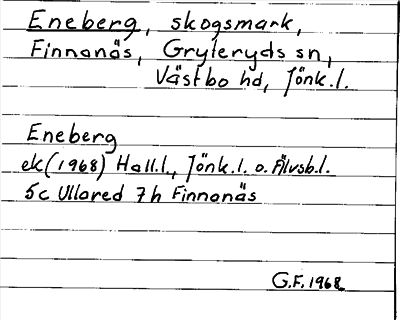 Eneberg, skogsmark,
Finnanäs, Gryteryds sn,
Västbo hd, Jönk.l.
Eneberg
ek (1968) Hall.l., Jönk.l. o. Älvsb.l.
5c Ullared 7h Finnanäs
G.F. 1968